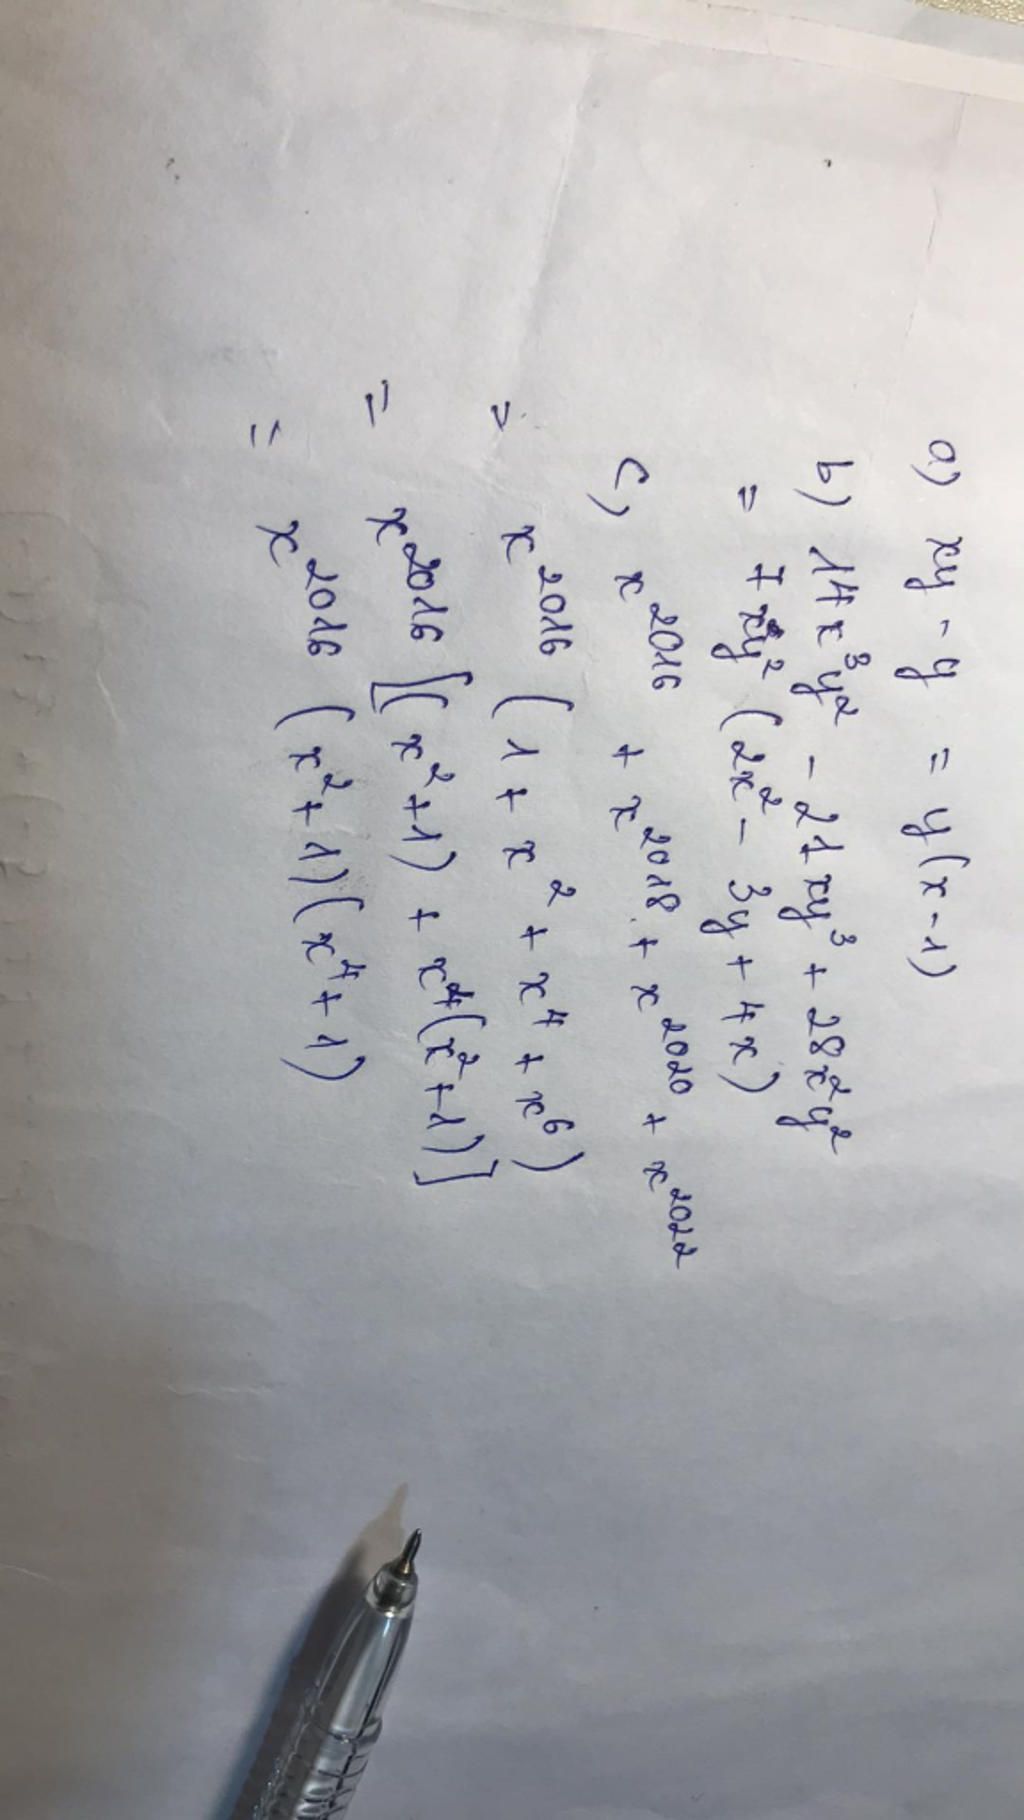 a) xy - y = y(x-1)
b) 14x³y² - 21xy³ + 28x²y²
= 7xy² (2x² - 3y + 4x)
c, x²⁰¹⁶ + x²⁰¹⁸ + x²⁰²⁰ + x²⁰²²
= x²⁰¹⁶ (1 + x² + x⁴ + x⁶)
= x²⁰¹⁶ [(x²+1) + x⁴(x²+1)]
= x²⁰¹⁶ (x²+1)(x⁴+1)